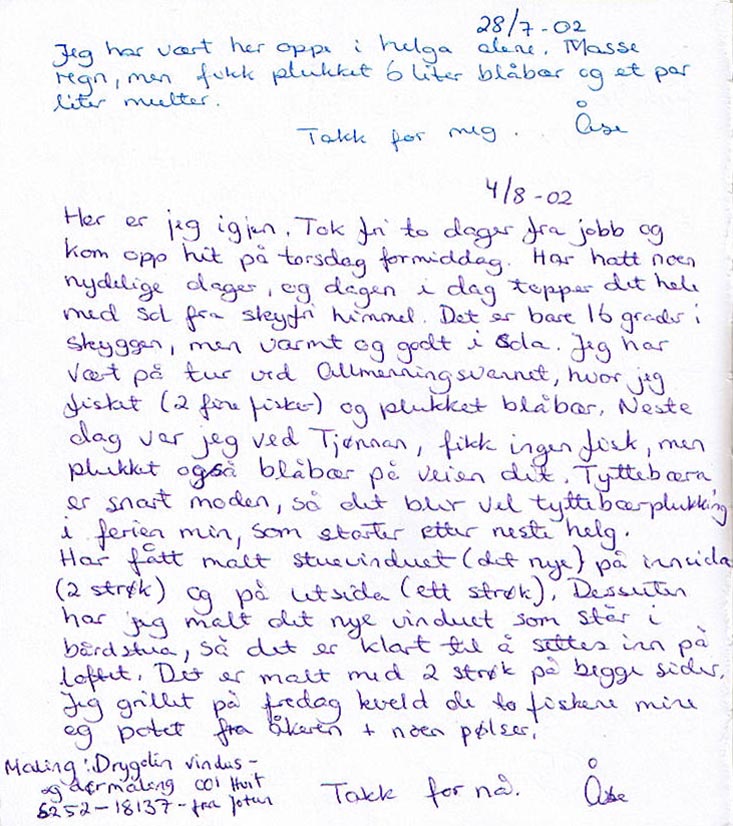 28/7-02
Jeg har vært her oppe i helga alene. Masse
regn, men fikk plukket 6 liter blåbær og et par
liter multer.
Takk for meg. Åse
4/8-02
Her er jeg igjen. Tok fri to dager fra jobb og
kom opp hit på torsdag formiddag. Har hatt noen
nydelige dager, og dagen i dag topper det hele
med sol fra skyfri himmel. Det er bare 16 grader i
skyggen, men varmt og godt i sola. Jeg har
vært på tur ved Allmenningsvannet, hvor jeg
fisket (2 fine fisker) og plukket blåbær. Neste
dag var jeg ved Tjønnan, fikk ingen fisk, men
plukket også blåbær på veien dit. Tyttebæra
er snart moden, så det blir vel tyttebærplukking
i ferien min, som starter etter neste helg.
Har fått malt stuevinduet (det nye) på innsida
(2 strøk) og på utsida (ett strøk). Dessuten
har jeg malt det nye vinduet som står i
bårdstua, så det er klart til å settes inn på
loftet. Det er malt med 2 strøk på begge sider.
Jeg grillet på fredag kveld de to fiskene mine
og potet fra åkeren + noen pølser.
Maling: Drygolin vindus-
og dørmaling 001 Hvit
5252-18137- fra Jotun
Takk for nå. Åse